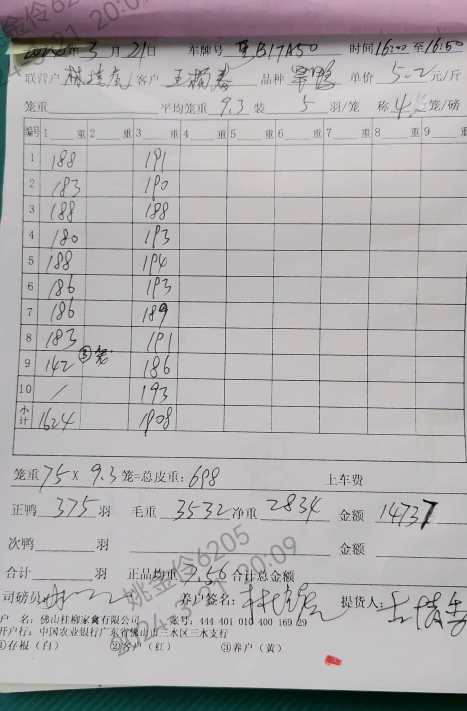 2024年3月21日 车牌号 粤B17A50 时间16:00至16:50
联营户 客户 品种 单价 5.2 元/斤
笼重 平均笼重 9.3 装 5 羽/笼 称 4 笼/磅
编号 1 重 2 重 3 重 4 重 5 重 6 重 7 重 8 重 9 重
1 188 191
2 183 190
3 188 188
4 180 193
5 188 194
6 186 193
7 186 189
8 183 191
9 142 ③笼 186
10 / 193
小计 1624 1908
笼重 75 X 9.3 笼=总皮重: 698 上车费
正鸭 375 羽 毛重 3532 净重 2834 金额 14737
次鸭 羽 金额
合计 羽 正品均重 7.56 合计总金额
司磅员 养户签名: 提货人:
户 名: 佛山桂柳家禽有限公司 账号: 444 401 010 400 169 29
开户行: 中国农业银行广东省佛山市三水区三水支行
①存根（白） ②客户（红） ③养户（黄）
姚金伶6205
2024-3-21 20:09